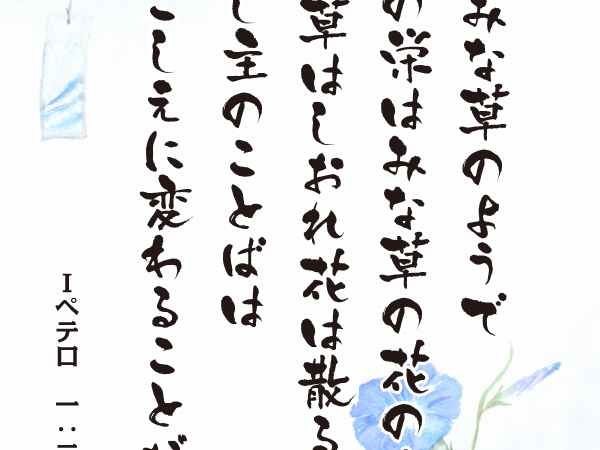 みな草のようで
の栄はみな草の花の
草はしおれ花は散る
し主のことばは
こしえに変わることが
Iペテロ 一:一